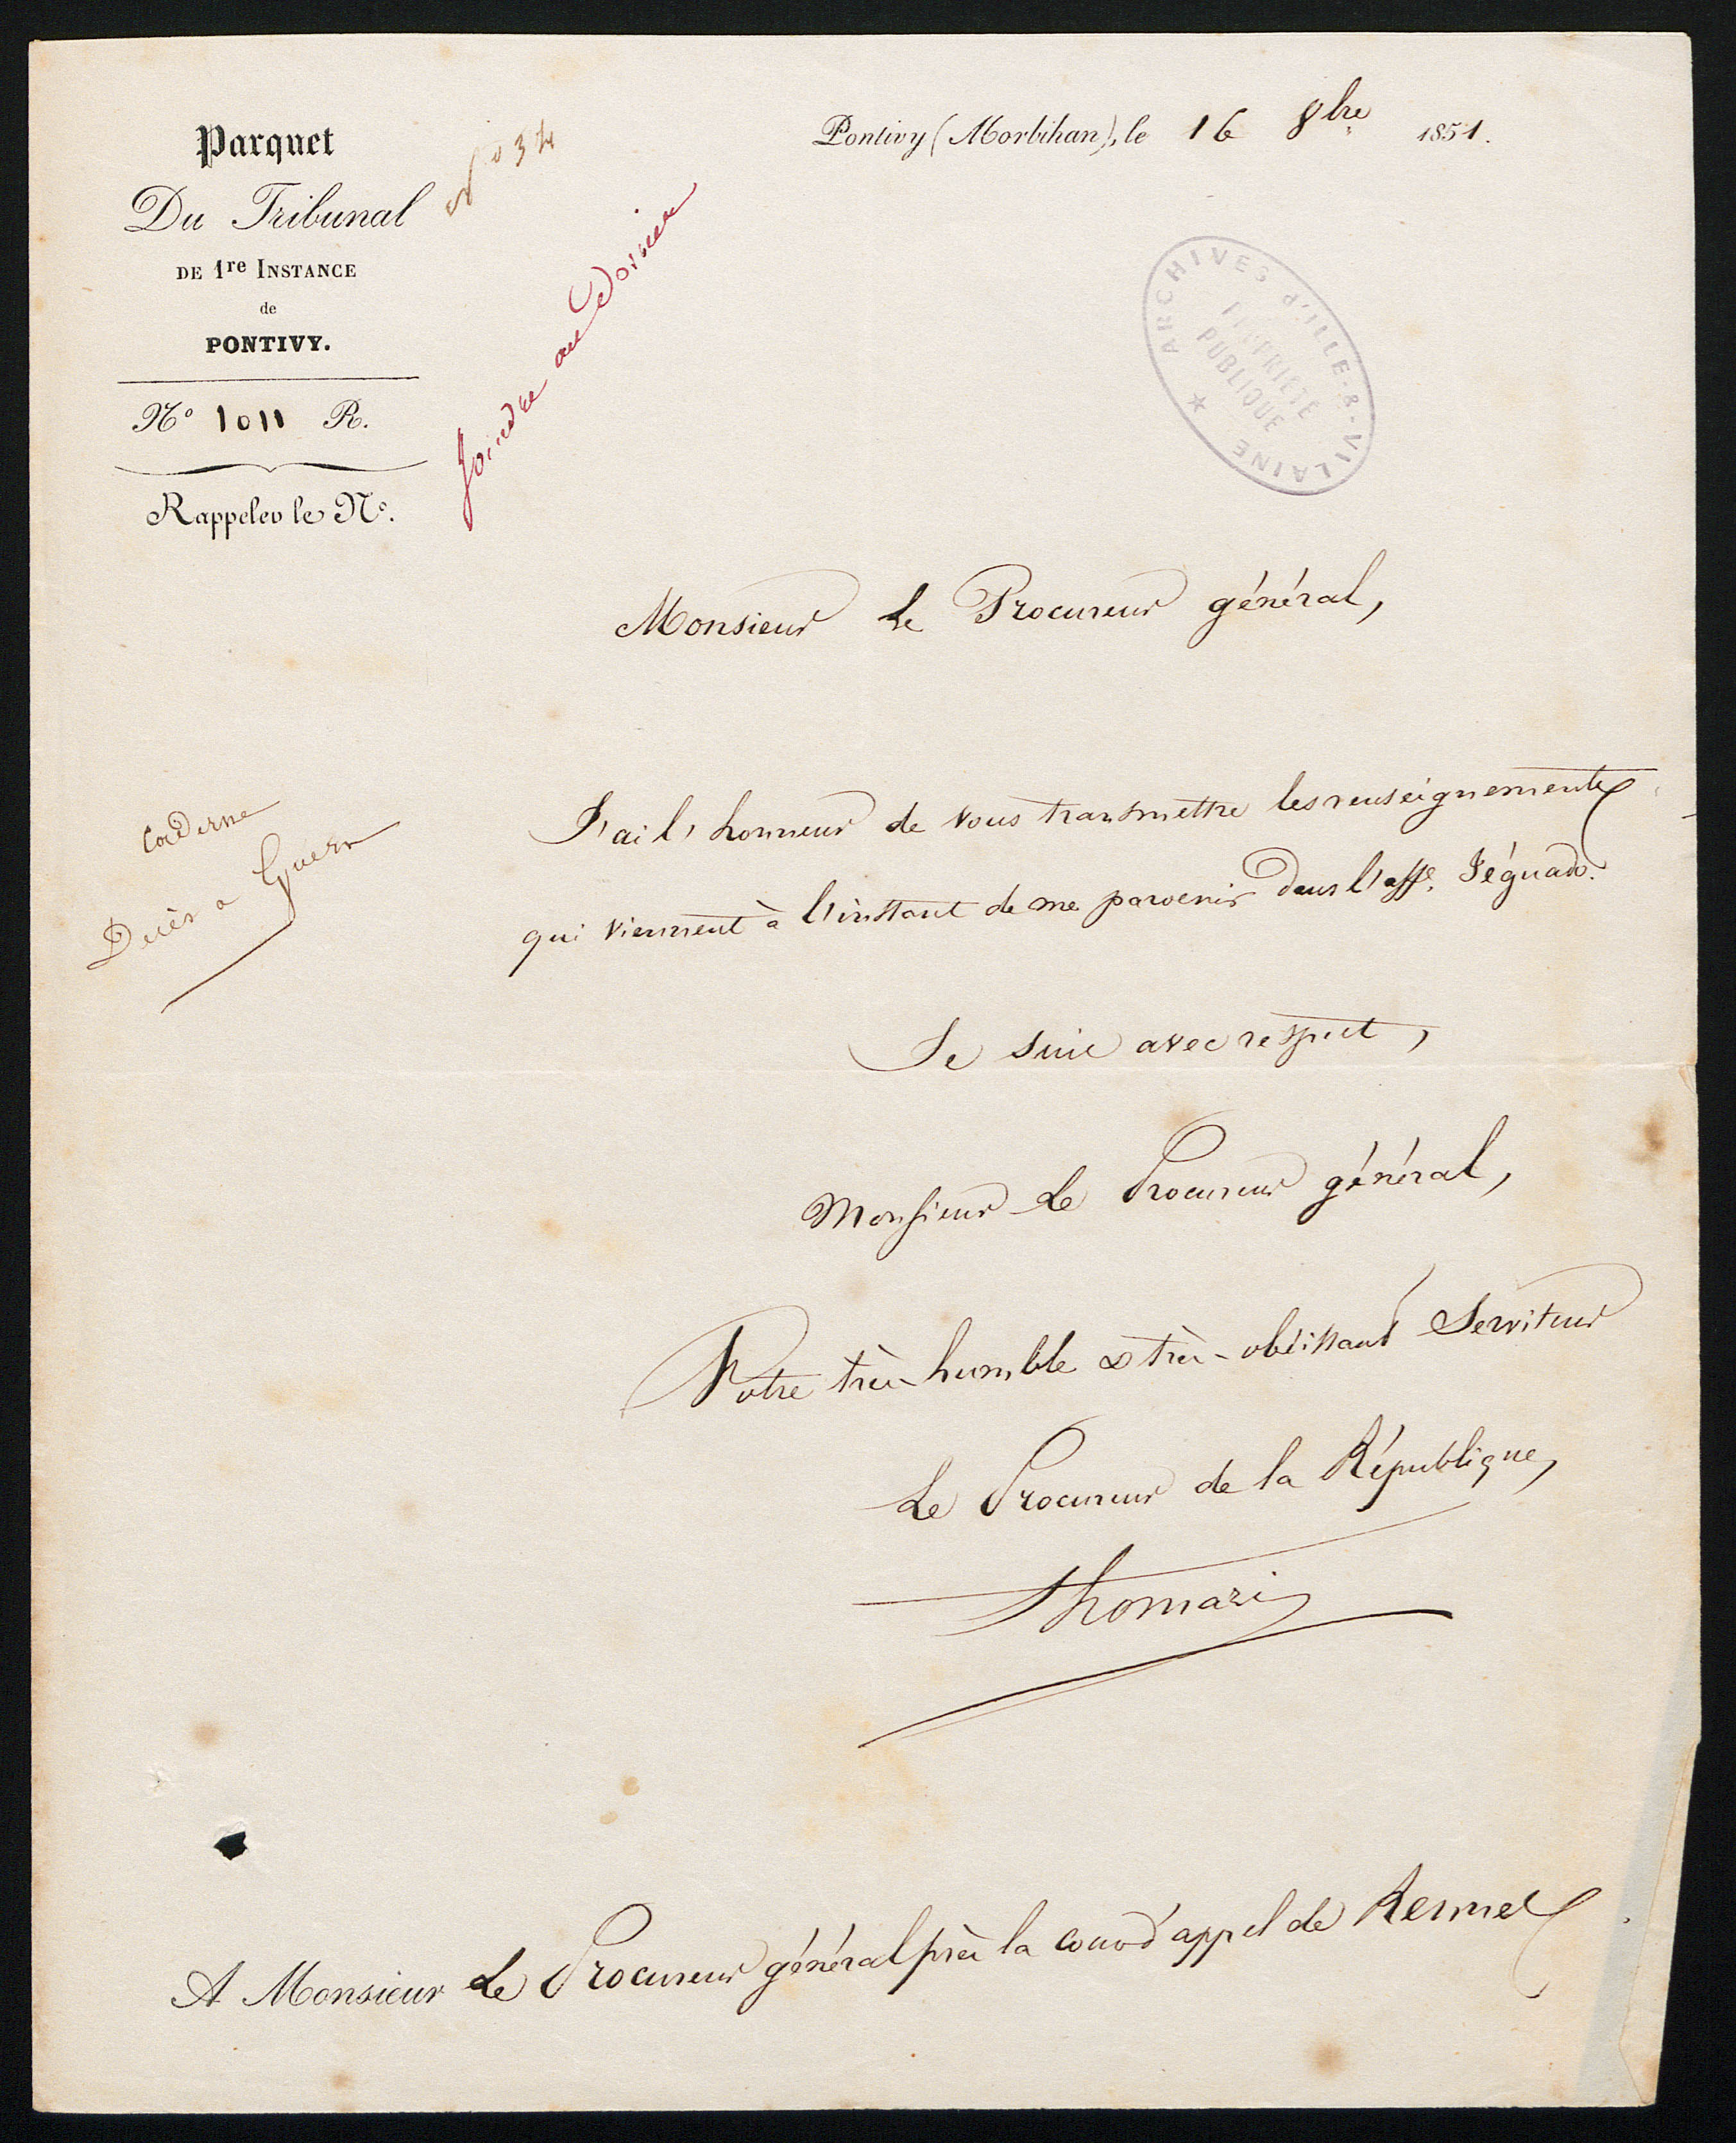 Parquet
Du Tribunal
DE 1re INSTANCE
de
PONTIVY.
N° 1011 R.
Rappeler le N°.
N° 34
Joindre au Dossier
Pontivy (Morbihan), le 16 8bre 1851.
ARCHIVES D'ILLE-&-VILAINE ★
PROPRIÉTÉ
PUBLIQUE
Monsieur Le Procureur général,
Décès à Guern
J'ai l'honneur de vous transmettre les renseignements
qui viennent à l'instant de me parvenir dans l'affe. Jéguado.
Je suis avec respect,
Monsieur Le Procureur général,
Votre très-humble & très-obéissant Serviteur
Le Procureur de la République,
A Monsieur Le Procureur général près la cour d'appel de Rennes